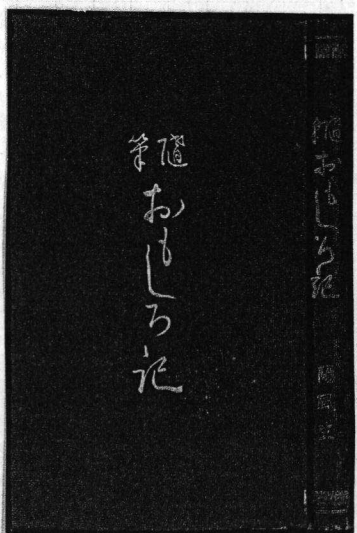 随筆
おもしろ記
随筆おもしろ記